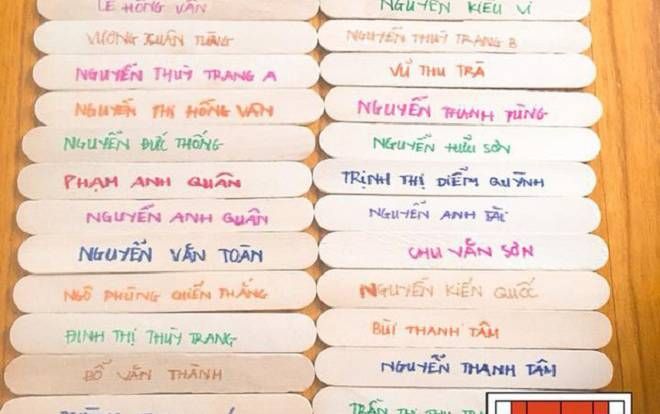 LÊ HỒNG VÂN
NGUYỄN KIỀU VI
VƯƠNG XUÂN TÙNG
NGUYỄN THUỲ TRANG B
NGUYỄN THUỲ TRANG A
VŨ THU TRÀ
NGUYỄN THỊ HỒNG VÂN
NGUYỄN THANH TÙNG
NGUYỄN ĐỨC THỐNG
NGUYỄN HỮU SƠN
PHẠM ANH QUÂN
TRỊNH THỊ DIỄM QUỲNH
NGUYỄN ANH QUÂN
NGUYỄN ANH TÀI
NGUYỄN VĂN TOÀN
CHU VĂN SƠN
NGÔ PHÙNG CHIẾN THẮNG
NGUYỄN KIẾN QUỐC
ĐINH THỊ THUỲ TRANG
BÙI THANH TÂM
ĐỖ VĂN THÀNH
NGUYỄN THANH TÂM
TRẦN THỊ THU